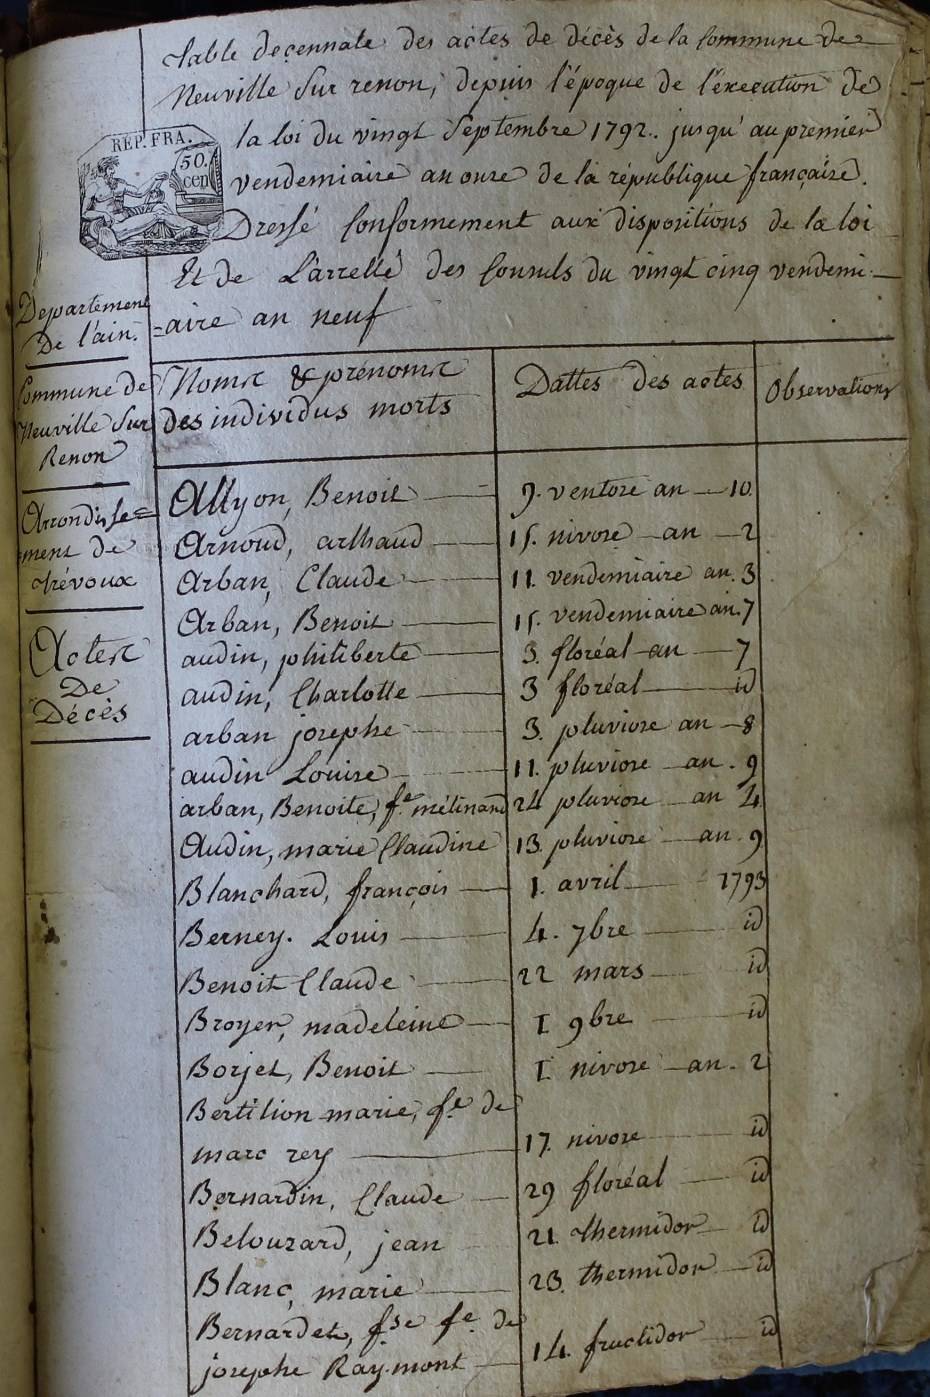 Table decennale des actes de décès de la Commune de
Neuville Sur renon, depuis l'époque de l'éxecution de
la loi du vingt Septembre 1792. jusqu'au premier
vendemiaire an onze de la république françaïse.
Dressé Conformement aux dispositions de la loi
Et de L'arretté des Consuls du vingt cinq vendemi-
=aire an neuf
REP. FRA.
50.
cen
Departement
De l'ain.
Commune de
Neuville Sur
Renon
Arrondisse=
=ment de
trévoux
Actes
De
Décès
Noms & prénoms
des individus morts
Dattes des actes
Observations
Allyon, Benoit 9. ventose an 10.
Arnoud, arthaud 15. nivose an 2
Arban, Claude 11. vendemiaire an. 3
Arban, Benoit 15. vendemiaire an. 7
audin, philiberte 3. floréal an 7
audin, Charlotte 3 floréal id
arban josephe 3. pluviose an 8
audin Louise 11. pluviose an. 9
arban, Benoite, fe. mélinand 24 pluviose an 4
Audin, marie Claudine 13. pluviose an. 9
Blanchard, françois 1. avril 1793
Berney. Louis 4. 7bre id
Benoit Claude 22 mars id
Broyer, madeleine I 9bre id
Borjet, Benoit I. nivose an. 2
Bertilion marie, fe. de
marc rey 17. nivose id
Bernardin, Claude 29 floréal id
Belouzard, jean 21. thermidor id
Blanc, marie 23. thermidor id
Bernardet, fse fe. de
josephe Raymont 14. fructidor id